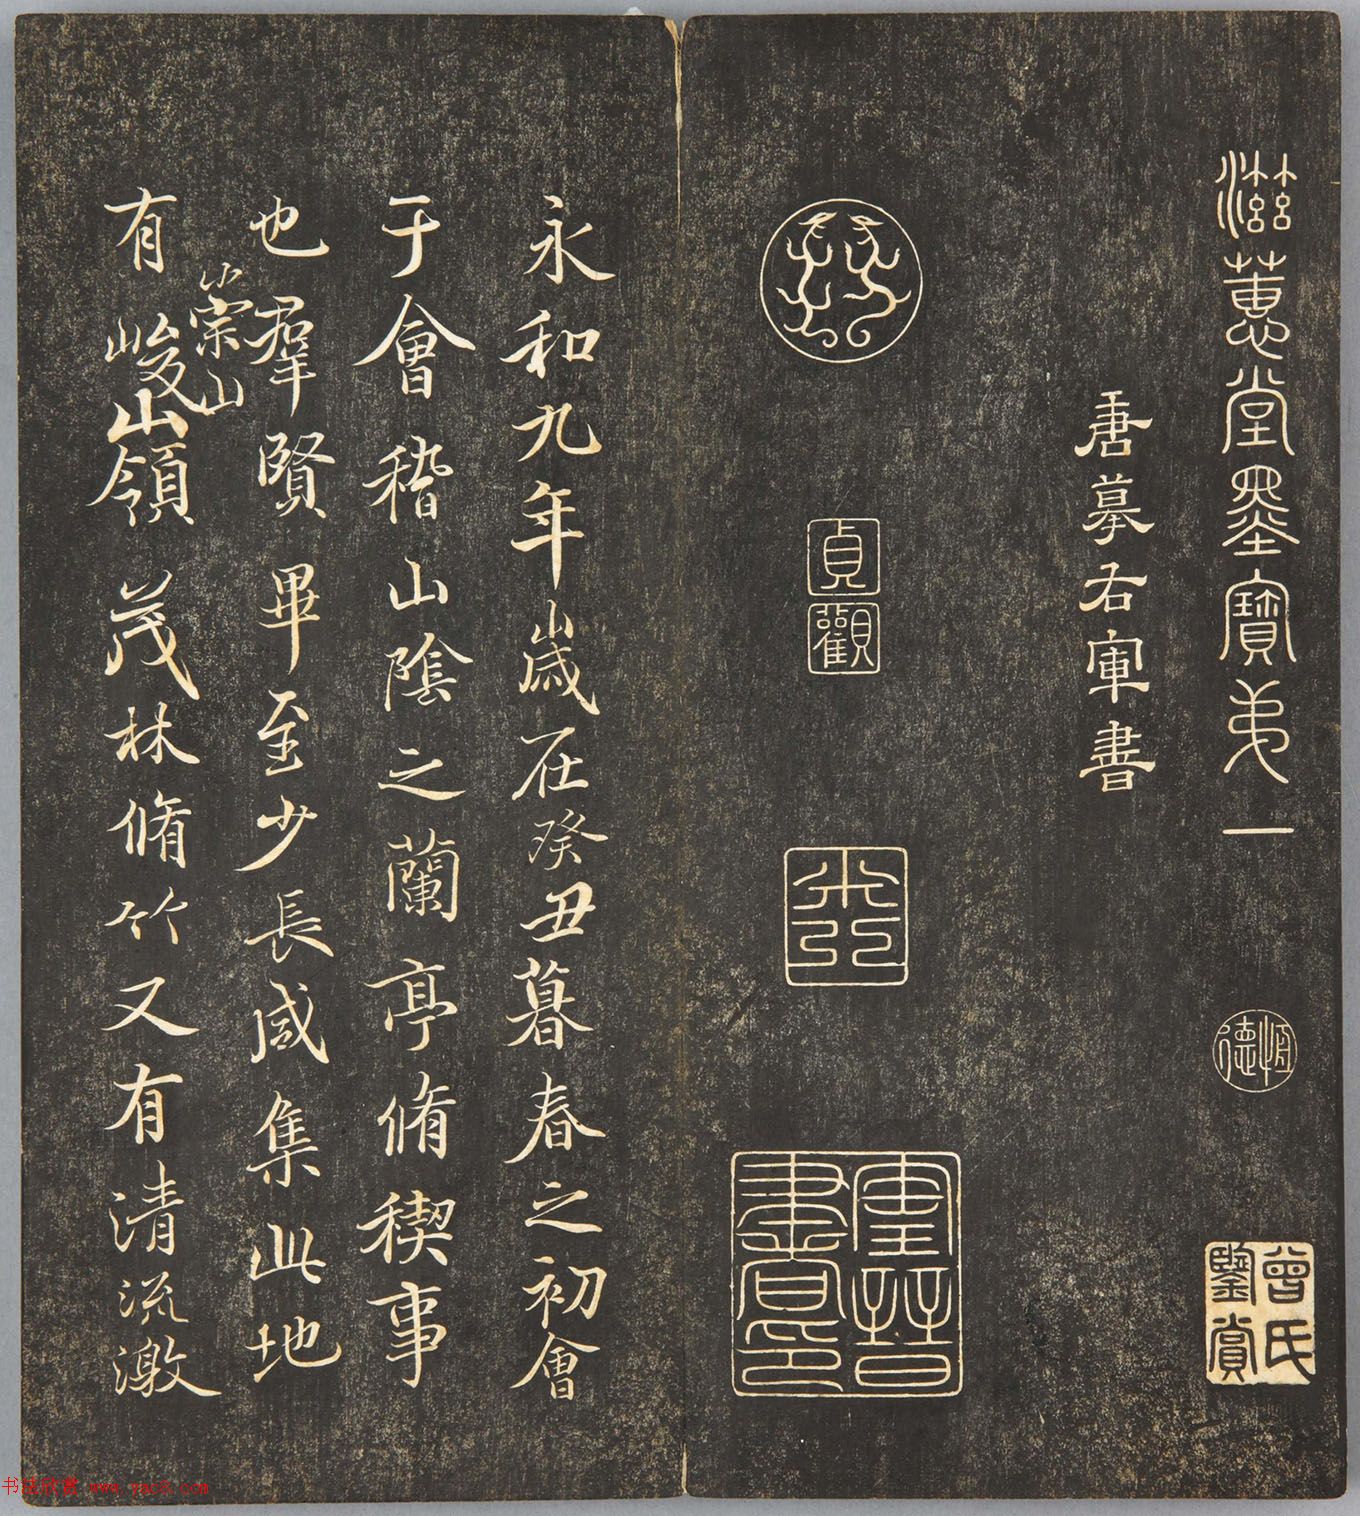 滋蕙堂墨寶第一
恒德
曾氏
鑒賞
唐摹右軍書
貞
觀
永和九年歲在癸丑暮春之初會
于會稽山陰之蘭亭脩稧事
也羣賢畢至少長咸集此地
崇山
有峻領茂林脩竹又有清流激
书法欣赏 www.yac8.com